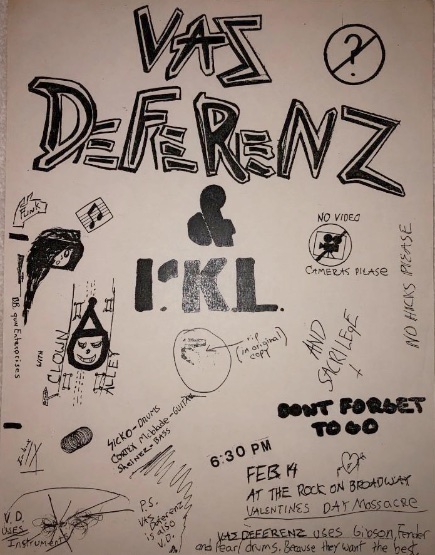 VAS
DEFERENZ
&
P.K.L.
?
NO VIDEO
CAMERAS PLEASE
NO HICKS PLEASE
PUNK
DB gun Enterprises
CLOWN
ALLEY
rip
(in original
copy)
AND
SACRILEGE
SICKO-DRUMS
CORTEX McBlade-GUITAR
Sheiner-BASS
DONT FORGET
TO GO
6:30 PM
FEB 14
AT THE ROCK ON BROADWAY
VALENTINES DAY MASSACRE
V.D.
USES
Instruments
P.S.
VAS
Deferenz
is also
V.D.
VAS DEFERENZ USES Gibson, Fender
and Pearl drums. Because they want the best.